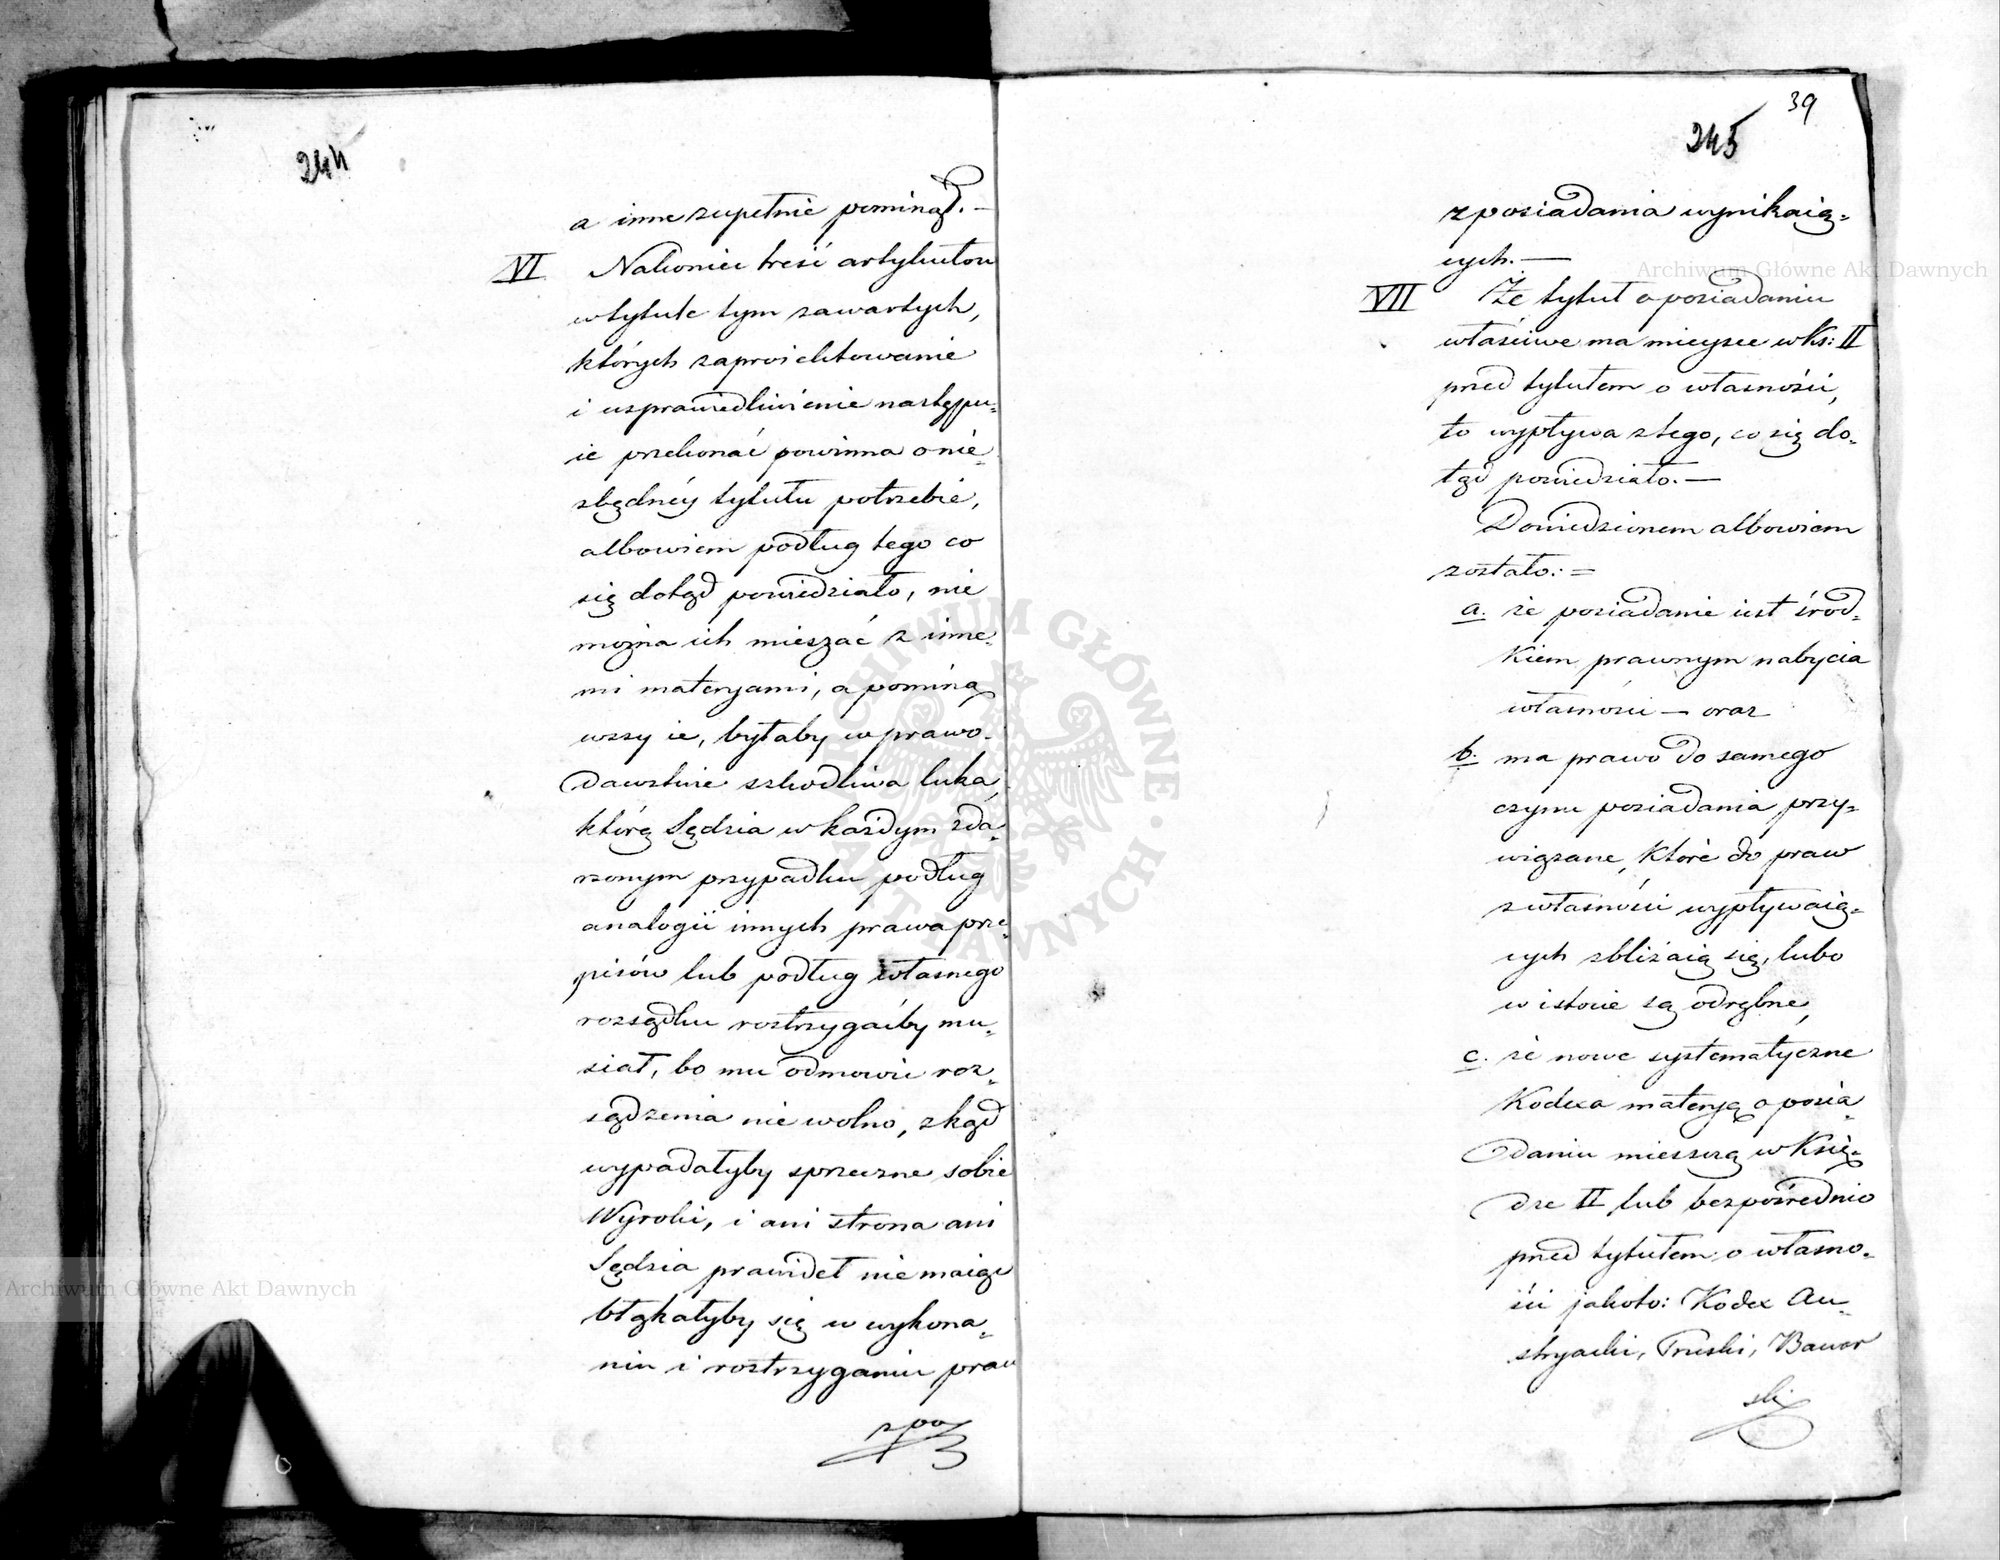 244
a inne zupełnie pominął. —
VI Nakoniec treść artykułow
w tytule tym zawartych,
których zaproiektowanie
i usprawiedliwienie następu„
ie przekonać powinna o nie„
zbędnéy tytułu potrzebie,
albowiem podług tego co
się dotąd powiedziało, nie
można ich mieszać z inne„
mi materyami, a pominą„
wszy ie, byłaby w prawo„
dawstwie szkodliwa luka,
którą Sędzia w każdym zda„
rzonym przypadku podług
analogii innych prawa prze„
pisów lub podług własnego
rozsądku rostrzygaćby mu„
siał, bo mu odmowić roz„
sądzenia nie wolno, zkąd
wypadałyby sprzeczne sobie
Wyroki, i ani strona ani
Sędzia prawideł nie maiąc
błąkałyby się w wykona„
niu i rostrzyganiu praw
z po
39
245
z posiadania wynikaią„
cych. —
VII Że tytuł o posiadaniu
właściwe ma mieysce w Ks: II
przed tytułem o własności,
to wypływa z tego, co się do„
tąd powiedziało. —
Dowiedzionem albowiem
zostało: =
a. że posiadanie iest środ„
kiem prawnym nabycia
własności — oraz
b. ma prawo do samego
czynu posiadania przy„
wiązane, które do praw
z własności wypływaią„
cych zbliżaią się, lubo
w istocie są odrębne,
c. że nowe systematyczne
Kodexa materyą o posia„
daniu mieszczą w Księ„
dze II lub bezpośrednio
przed tytułem o własno„
ści jakoto: Kodex Au„
stryacki, Pruski, Bawar
ski
Archiwum Główne Akt Dawnych
Archiwum Główne Akt Dawnych
ARCHIWUM GŁÓWNE AKT DAWNYCH